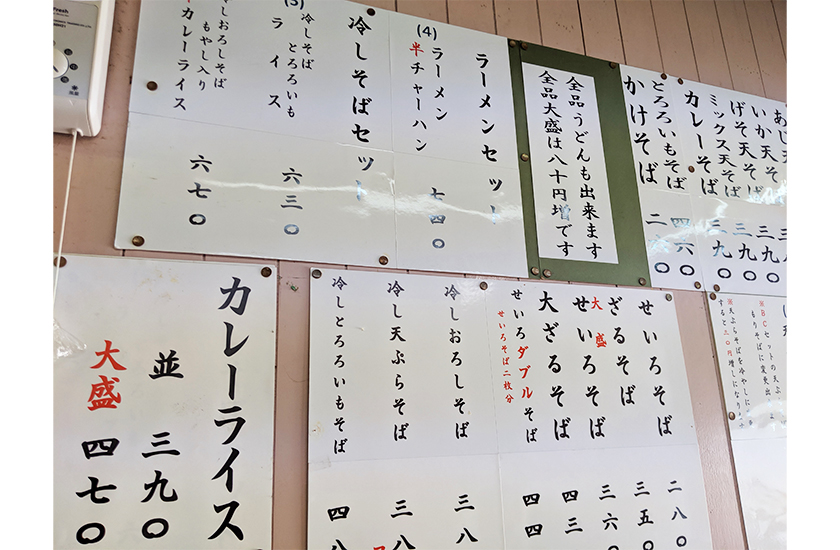 あじ天そば
いか天そば 三九〇
げそ天そば 三九〇
ミックス天そば 三九〇
カレーそば
とろろいもそば 四六〇
かけそば
全品うどんも出来ます
全品大盛は八十円増です
ラーメンセット
(4)
ラーメン
半チャーハン 七四〇
冷しそばセット
冷しそば
とろろいも
ライス 六三〇
冷しおろしそば
もやし入り
カレーライス 六七〇
せいろそば 二八〇
ざるそば 三五〇
大盛
せいろそば 三六〇
大ざるそば 四三
せいろダブルそば 四四
せいろそば二枚分
冷しおろしそば 三八
冷し天ぷらそば 三八
冷しとろろいもそば 四八
カレーライス
並 三九〇
大盛 四七〇
※BCセットの天ぷ
もりそばに変更出
※天ぷらそばを冷やしに
すると三〇円増しになり